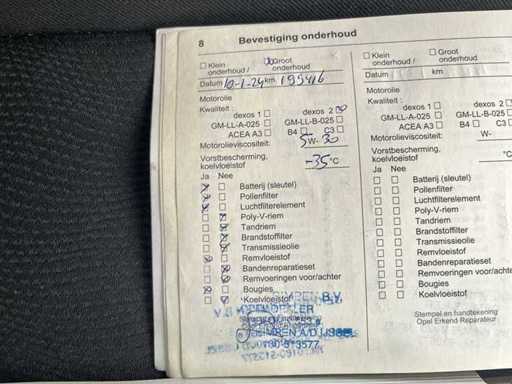 8 Bevestiging onderhoud
Klein onderhoud /
Groot onderhoud
Datum 10-1-24 km 195416
Motorolie
Kwaliteit :
dexos 1 dexos 2
GM-LL-A-025 GM-LL-B-025
ACEA A3 B4 C3
Motorolieviscositeit: 5W-30
Vorstbescherming,
koelvloeistof -35 °C
Ja Nee
Batterij (sleutel)
Pollenfilter
Luchtfilterelement
Poly-V-riem
Tandriem
Brandstoffilter
Transmissieolie
Remvloeistof
Bandenreparatieset
Remvoeringen voor/achter
Bougies
Koelvloeistof
B.V.
A/D IJSSEL
Klein onderhoud /
Groot onderhoud
Datum km
Motorolie
Kwaliteit :
dexos 1 dexos 2
GM-LL-A-025 GM-LL-B-025
ACEA A3 B4 C3
Motorolieviscositeit: W-
Vorstbescherming,
koelvloeistof °C
Ja Nee
Batterij (sleutel)
Pollenfilter
Luchtfilterelement
Poly-V-riem
Tandriem
Brandstoffilter
Transmissieolie
Remvloeistof
Bandenreparatieset
Remvoeringen voor/achter
Bougies
Koelvloeistof
Stempel en handtekening
Opel Erkend Reparateur